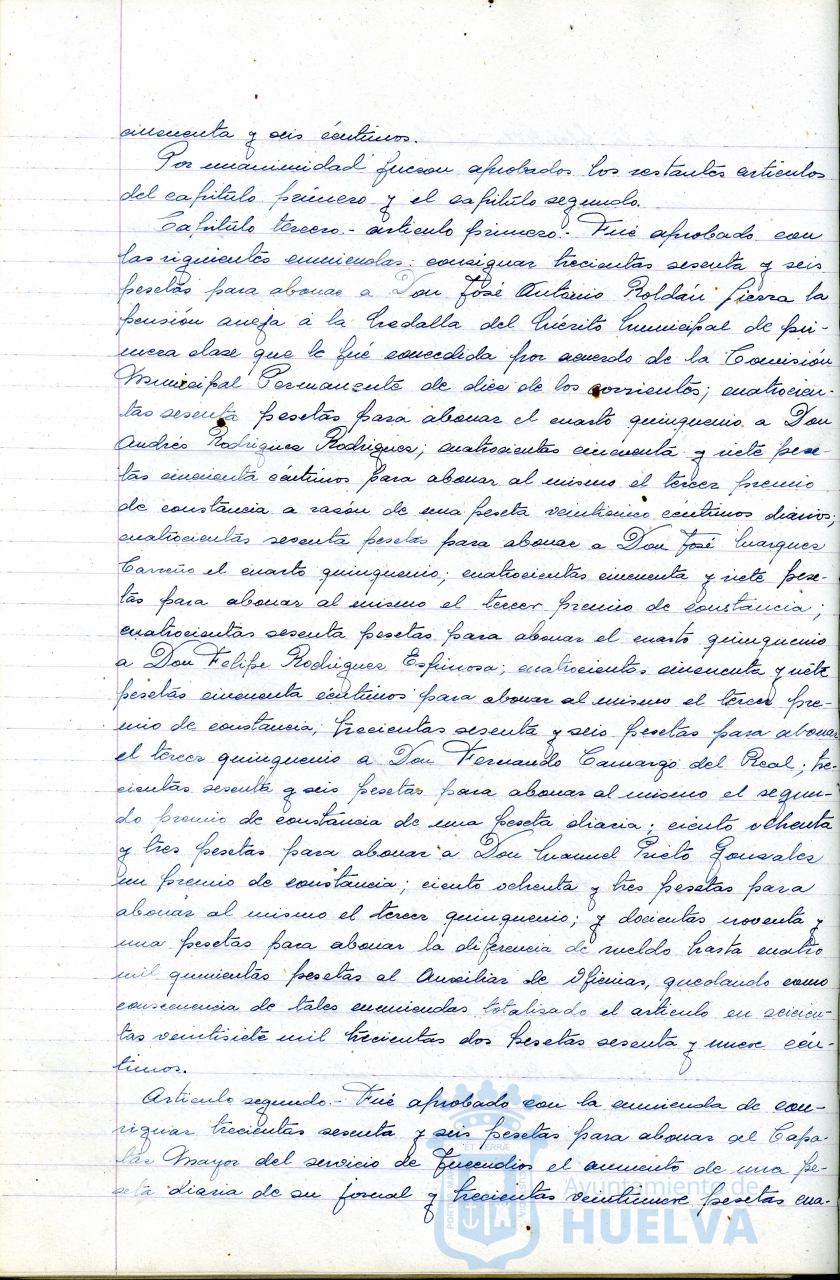 cincuenta y seis céntimos.
Por unanimidad fueron aprobados los restantes artículos
del capítulo primero y el capítulo segundo.
Capítulo tercero.- artículo primero.- Fué aprobado con
las siguientes enmiendas: consignar trecientas sesenta y seis
pesetas para abonar a Don José Antonio Roldán Sierra la
pensión aneja a la Medalla del Mérito Municipal de pri-
mera clase que le fué concedida por acuerdo de la Comisión
Municipal Permanente de diez de los corrientes; cuatrocien-
tas sesenta pesetas para abonar el cuarto quinquenio a Don
Andrés Rodríguez Rodríguez; cuatrocientas cincuenta y siete pese-
tas cincuenta céntimos para abonar al mismo el tercer premio
de constancia a razón de una peseta veinticinco céntimos diarios;
cuatrocientas sesenta pesetas para abonar a Don José Marquez
Carreño el cuarto quinquenio; cuatrocientas cincuenta y siete pese-
tas para abonar al mismo el tercer premio de constancia;
cuatrocientas sesenta pesetas para abonar el cuarto quinquenio
a Don Felipe Rodriguez Espinosa; cuatrocientas cincuenta y siete
pesetas cincuenta céntimos para abonar al mismo el tercer pre-
mio de constancia, trecientas sesenta y seis pesetas para abonar
el tercer quinquenio a Don Fernando Camargo del Real; tre-
cientas sesenta y seis pesetas para abonar al mismo el segun-
do premio de constancia de una peseta diaria; ciento ochenta
y tres pesetas para abonar a Don Manuel Prieto Gonzalez
un premio de constancia; ciento ochenta y tres pesetas para
abonar al mismo el tercer quinquenio; y docientas noventa y
una pesetas para abonar la diferencia de sueldo hasta cuatro
mil quinientas pesetas al Auxiliar de Oficias, quedando como
consecuencia de tales enmiendas totalizado el artículo en seicien-
tas veintisiete mil trecientas dos pesetas sesenta y nueve cén-
timos.
Artículo segundo.- Fué aprobado con la enmienda de con-
signar trecientas sesenta y seis pesetas para abonar al Capa-
taz Mayor del servicio de Incendios el aumento de una pe-
seta diaria de su jornal y trecientas veintinueve pesetas cua-
Ayuntamiento de
HUELVA